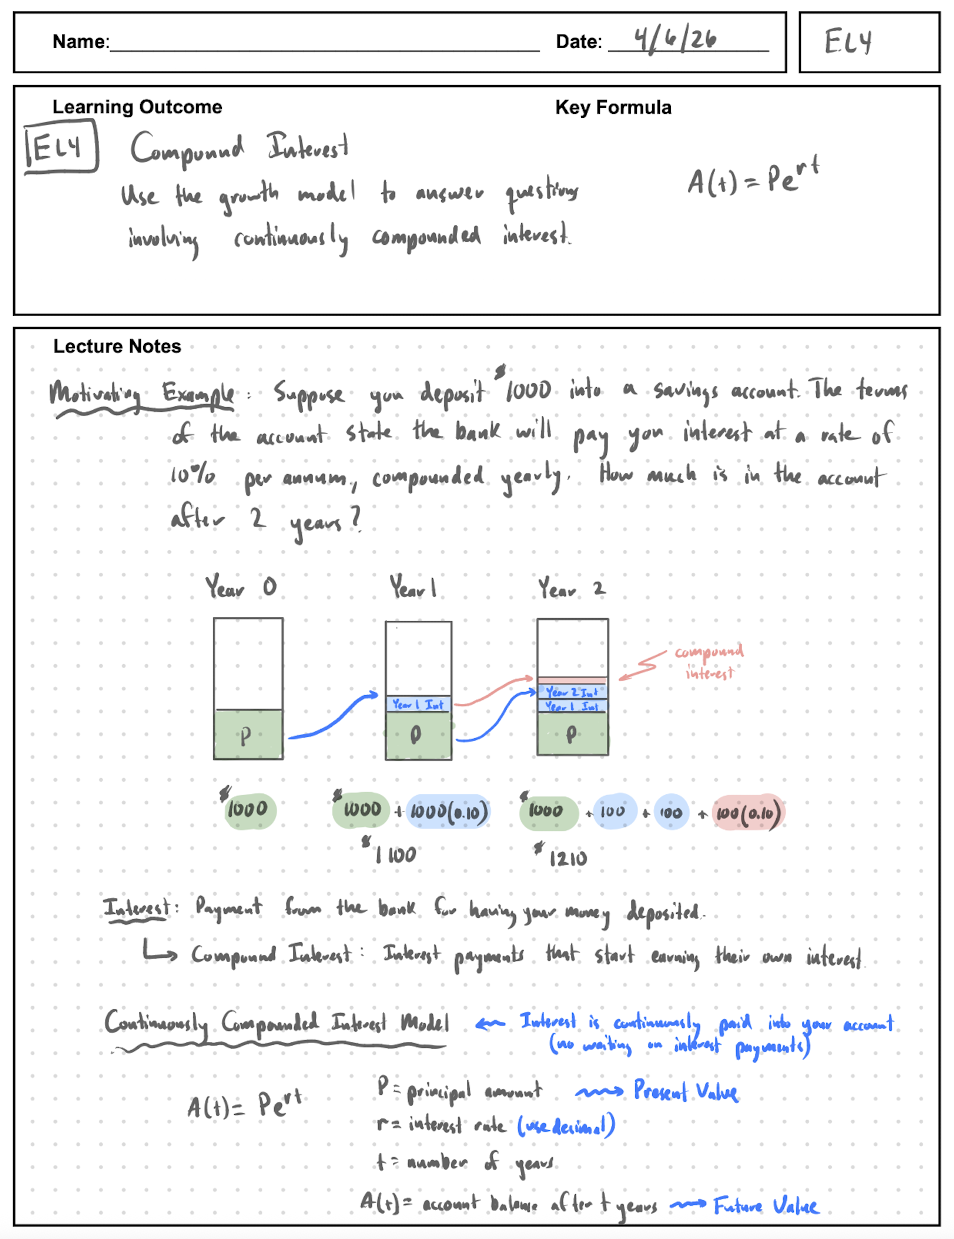 Name: Date: 4/6/26 EL4
Learning Outcome
EL4 Compound Interest
Use the growth model to answer questions
involving continuously compounded interest.
Key Formula
A(t) = Pe^rt
Lecture Notes
Motivating Example: Suppose you deposit $1000 into a savings account. The terms
of the account state the bank will pay you interest at a rate of
10% per annum, compounded yearly. How much is in the account
after 2 years?
Year 0 Year 1 Year 2
compound
interest
Year 2 Int
Year 1 Int Year 1 Int
P P P
$1000 $1000 + 1000(0.10) $1000 + 100 + 100 + 100(0.10)
$1100 $1210
Interest: Payment from the bank for having your money deposited.
↳ Compound Interest: Interest payments that start earning their own interest
Continuously Compounded Interest Model ← Interest is continuously paid into your account
(no waiting on interest payments)
A(t) = Pe^rt
P = principal amount → Present Value
r = interest rate (use decimal)
t = number of years
A(t) = account balance after t years → Future Value